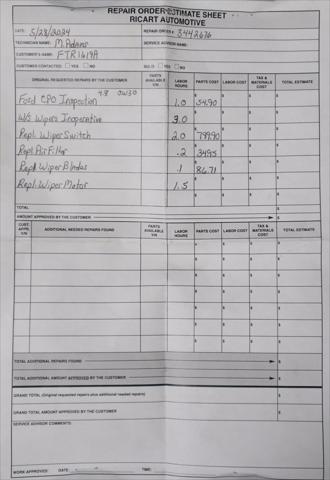 REPAIR ORDER ESTIMATE SHEET
RICART AUTOMOTIVE
DATE: 5/28/2024 REPAIR ORDER # 3442676
TECHNICIAN NAME: M. Adams SERVICE ADVISOR NAME:
CUSTOMER'S NAME: FTR1619A
CUSTOMER CONTACTED: YES NO YES NO
ORIGINAL REQUESTED REPAIRS BY THE CUSTOMER PARTS AVAILABLE Y/N LABOR HOURS PARTS COST LABOR COST TAX & MATERIALS COST TOTAL ESTIMATE
Ford CPO Inspection 4.8 0W30 1.0 $ 54.90 $ $ $
W/S Wipers Inoperative 3.0 $ $ $ $
Repl. Wiper Switch 2.0 $ 799.90 $ $ $
Repl. Air Filter .2 $ 34.95 $ $ $
Repl. Wiper Blades .1 $ 86.71 $ $ $
Repl. Wiper Motor 1.5 $ $ $ $
TOTAL $
AMOUNT APPROVED BY THE CUSTOMER $
CUST. APPR. Y/N ADDITIONAL NEEDED REPAIRS FOUND PARTS AVAILABLE Y/N LABOR HOURS PARTS COST LABOR COST TAX & MATERIALS COST TOTAL ESTIMATE
$ $ $ $
$ $ $ $
$ $ $ $
$ $ $ $
$ $ $ $
$ $ $ $
$ $ $ $
TOTAL ADDITIONAL REPAIRS FOUND $
TOTAL ADDITIONAL AMOUNT APPROVED BY THE CUSTOMER $
GRAND TOTAL (Original requested repairs plus additional needed repairs) $
GRAND TOTAL AMOUNT APPROVED BY THE CUSTOMER $
SERVICE ADVISOR COMMENTS:
WORK APPROVED DATE: TIME: